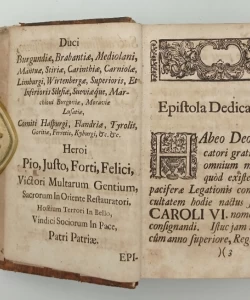 Duci
Burgundiæ, Brabantiæ, Mediolani,
Mantuæ, Stiriæ, Carinthiæ, Carniolæ,
Limburgi, Wirtenbergæ, Superioris, Et
Inferioris Silesiæ, Sueviæque, Mar-
chioni Burgoviæ, Moraviæ
Lusatiæ,
Comiti Habspurgi, Flandriæ, Tyrolis,
Goritiæ, Ferretis, Kyburgi, &c. &c.
Heroi
Pio, Justo, Forti, Felici,
Victori Multarum Gentium,
Sacrorum In Oriente Restauratori.
Hostium Terrori In Bello,
Vindici Sociorum In Pace,
Patri Patriæ.
EPI-
Epistola Dedica
HAbeo Deo
catori grati
omnium m
quòd existe
paciferæ Legationis con
cultatem hodie nactus
CAROLI VI. nom
consignandi. Istuc jam
cùm anno superiore, Reg
)(3